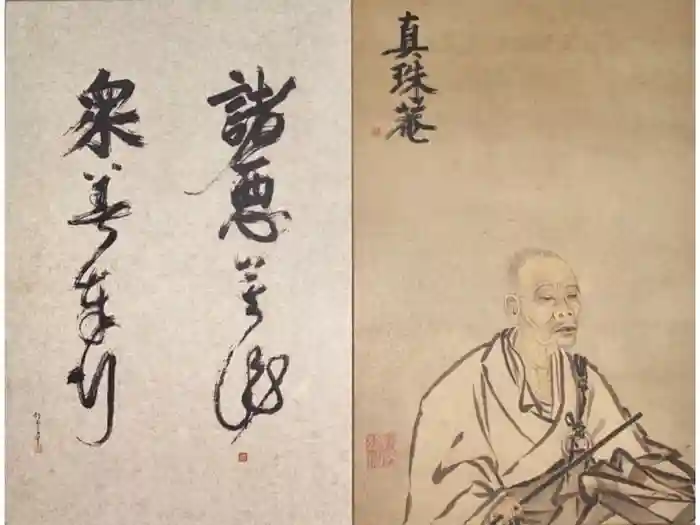 諸悪莫作
衆善奉行
真珠菴